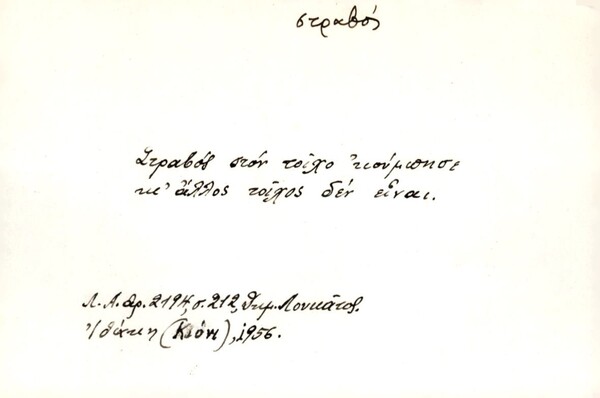 στραβός
Στραβός στόν τοῖχο ἀκούμπησε
κι' ἄλλος τοῖχος δέν εἶναι.
Λ.Α. ἀρ. 2194, σ. 212, Δημ. Λουκᾶτος.
Ἰθάκη (Κιόνι), 1956.